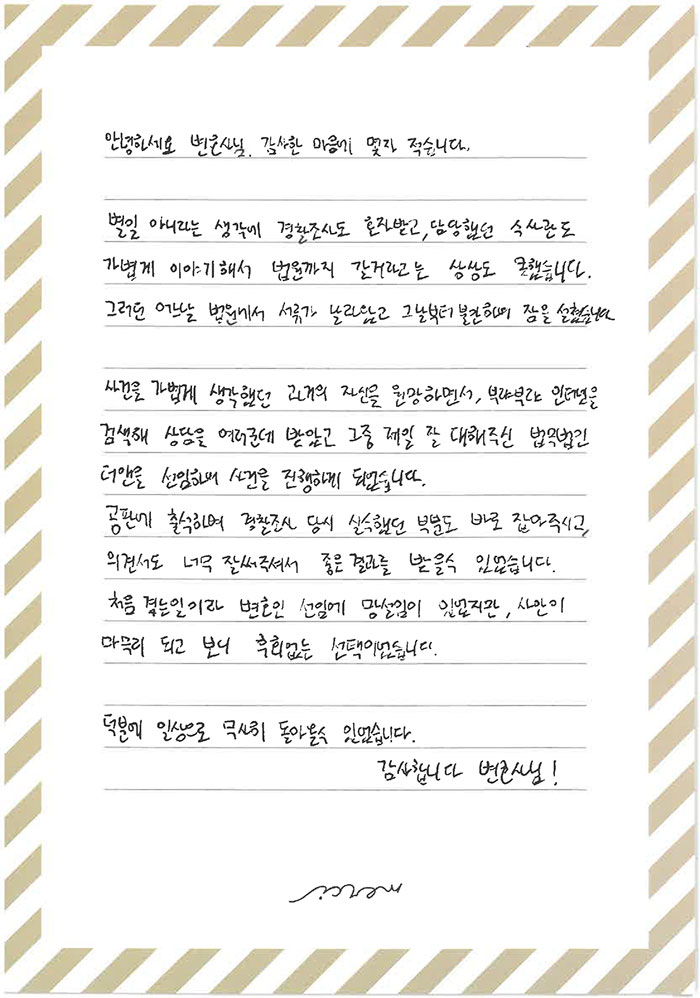 안녕하세요 변호사님. 감사한 마음에 몇자 적습니다.
별일 아니라는 생각에 경찰조사도 혼자받고, 담당했던 수사관도
가볍게 이야기해서 법원까지 갈거라고는 상상도 못했습니다.
그러던 어느날 법원에서 서류가 날라왔고 그날부터 불안하여 잠을 설쳤습니다
사건을 가볍게 생각했던 과거의 자신을 원망하면서, 부랴부랴 인터넷을
검색해 상담을 여러군데 받았고 그중 제일 잘 대해주신 법무법인
더앤을 선임하여 사건을 진행하게 되었습니다.
공판에 출석하여 경찰조사 당시 실수했던 부분도 바로 잡아주시고,
의견서도 너무 잘써주셔서 좋은결과를 받을수 있었습니다.
처음 겪는일이라 변호인 선임에 망설임이 있었지만, 사안이
마무리 되고 보니 후회없는 선택이었습니다.
덕분에 일상으로 무사히 돌아올수 있었습니다.
감사합니다 변호사님!
merci